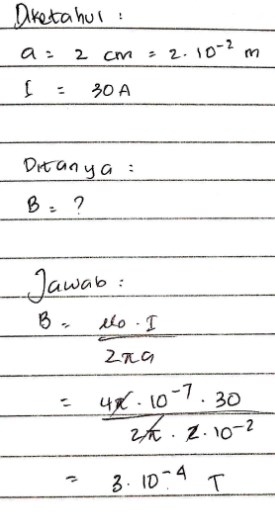 Diketahui :
a = 2 cm = 2 . 10⁻² m
I = 30 A
Ditanya :
B = ?
Jawab :
B = μo . I / 2πa
= 4π . 10⁻⁷ . 30 / 2π . 2 . 10⁻²
= 3 . 10⁻⁴ T